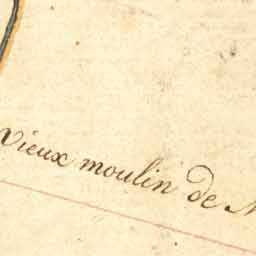 vieux moulin de